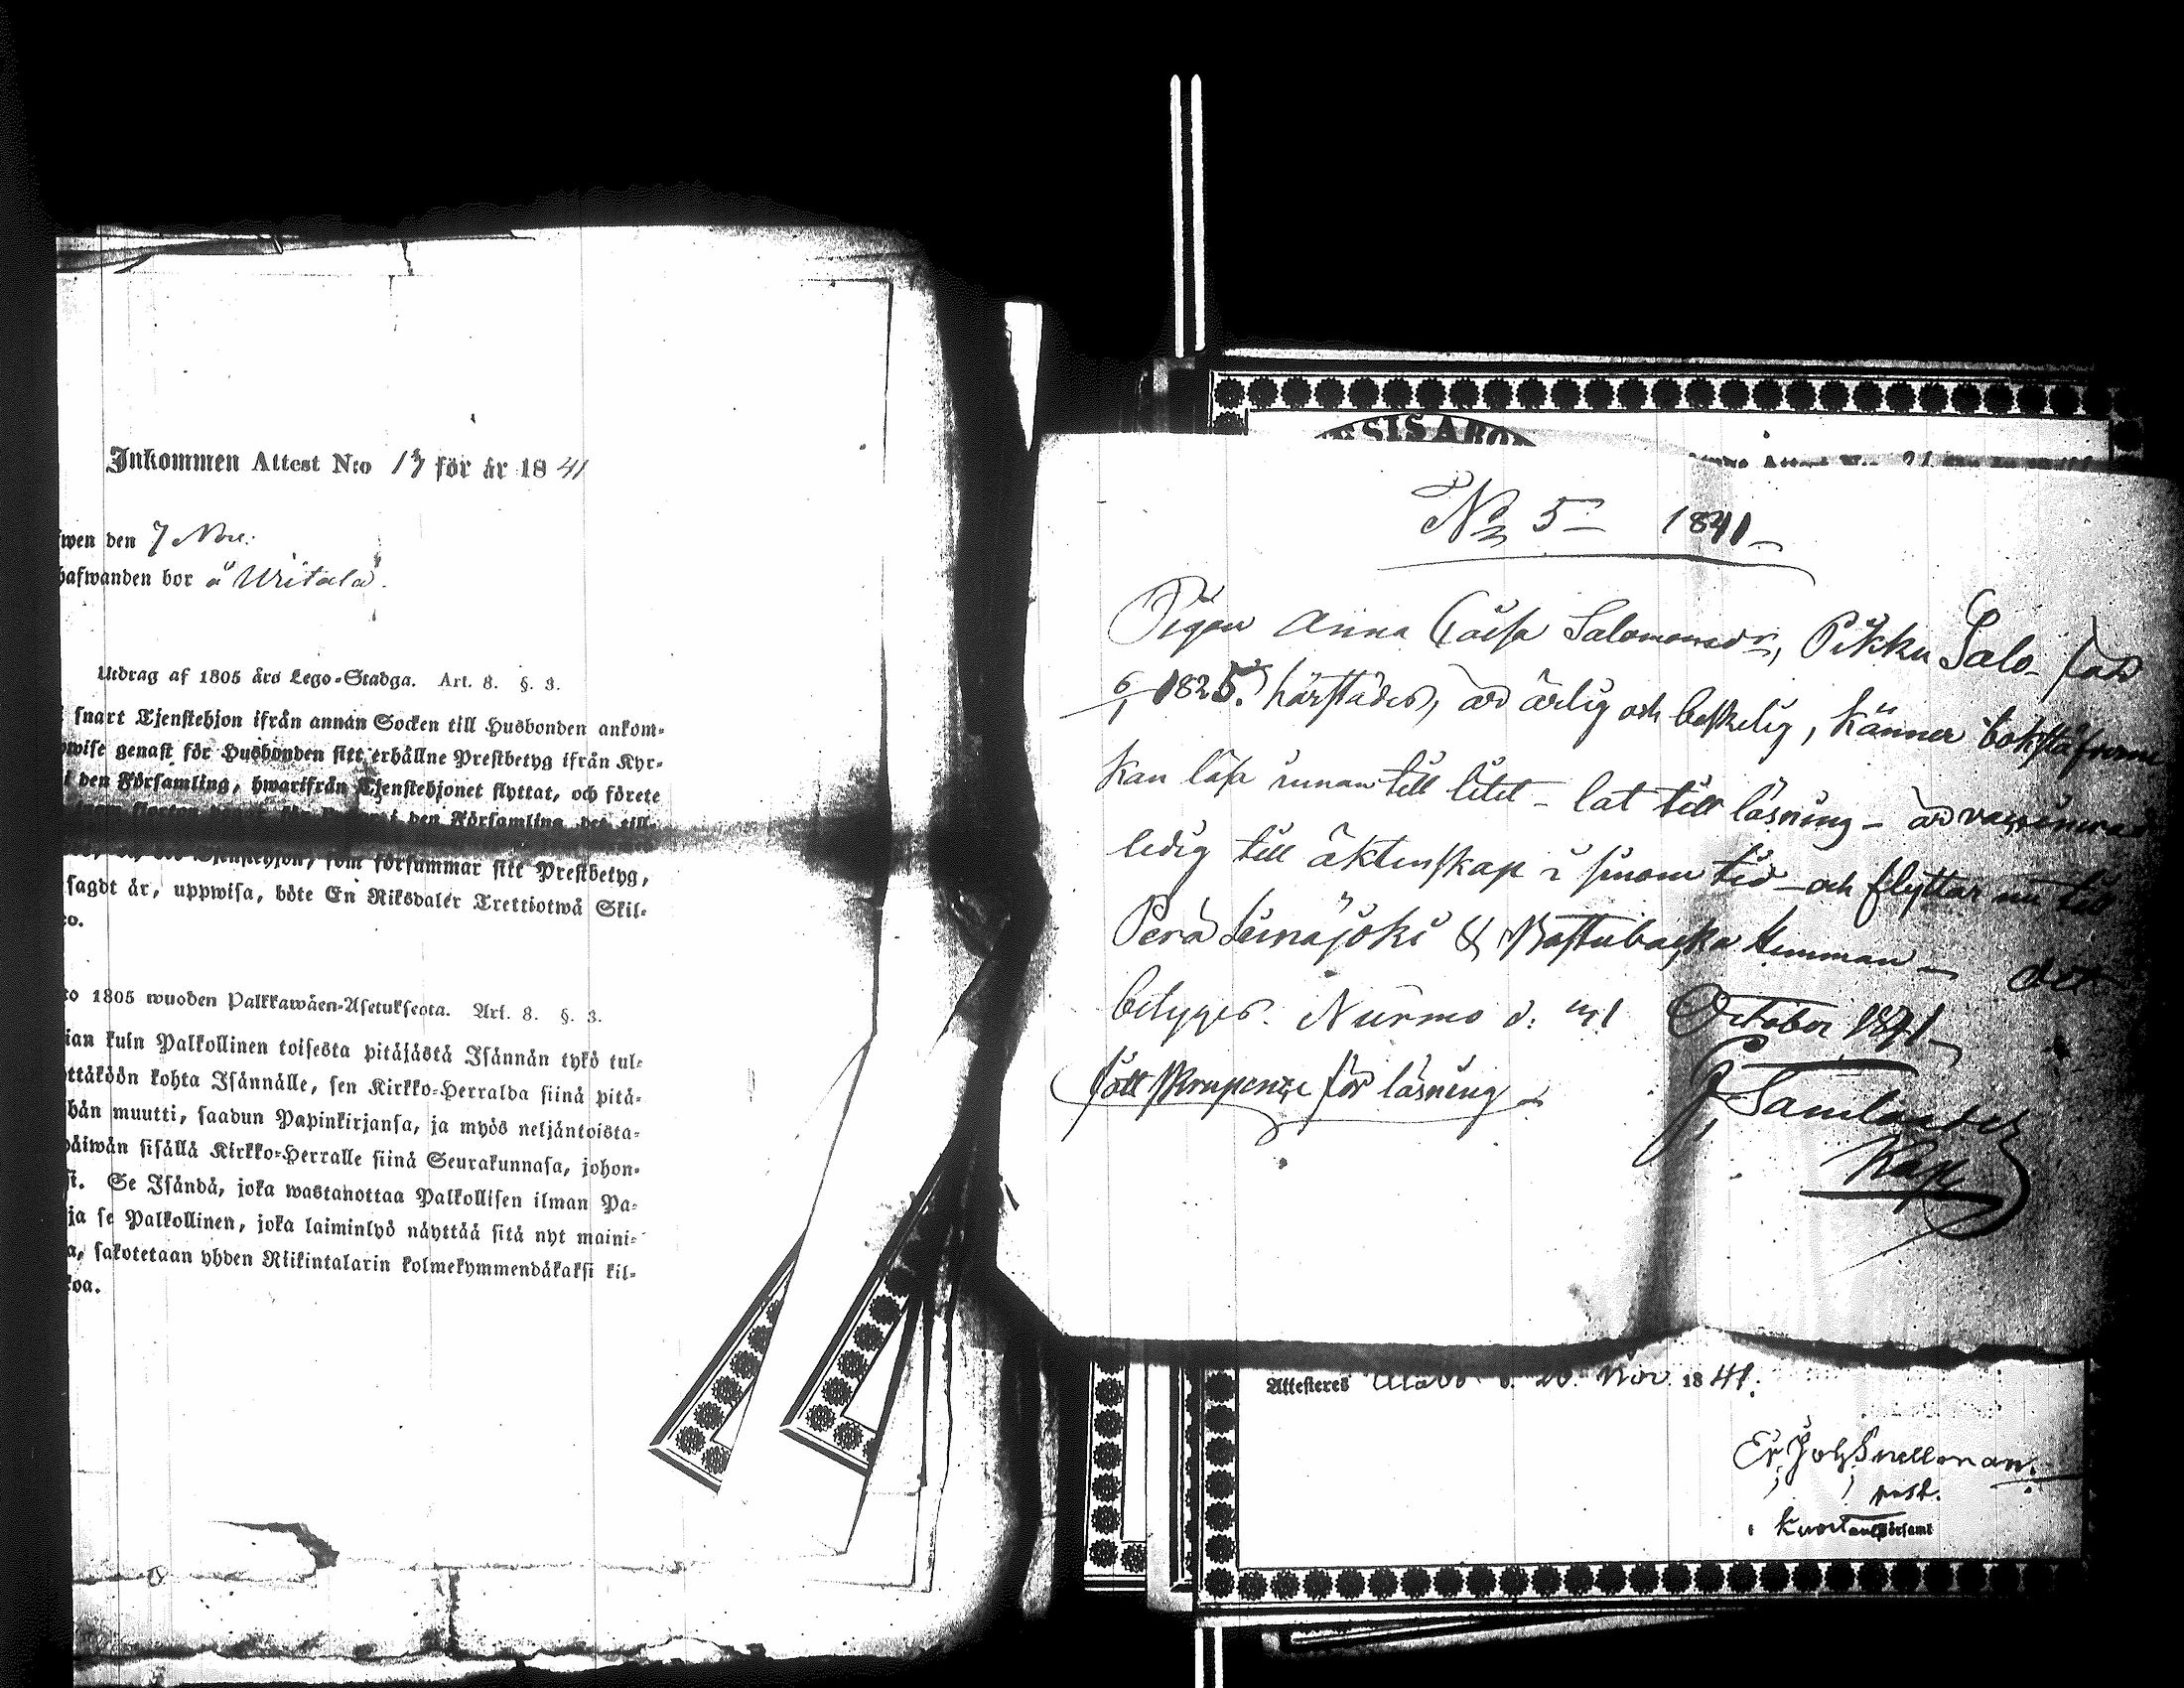 Inkommen Attest N:o 13 för år 1841
fwen den 7 Nov:
hafwanden bor å Writala.
Utdrag af 1805 års Lego-Stadga. Art. 8. §. 3.
snart Tjenstehjon ifrån annan Socken till Husbonden ankom-
wise genast för Husbonden sitt erhållne Prestbetyg ifrån Kyr-
den Församling, hwarifrån Tjenstehjonet flyttat, och förete
den Församling det till-
Tjenstehjon, som försummar sitt Prestbetyg,
sagdt år, uppwisa, böte En Riksdaler Trettiotwå Skil-
co.
to 1805 wuoden Palkkawäen-Asetuksesta. Art. 8. §. 3.
ian kuin Palkollinen toisesta pitäjästä Isännän tykö tul-
ttäköön kohta Isännälle, sen Kirkko-Herralda siinä pitä-
hän muutti, saadun Papinkirjansa, ja myös neljäntoista-
päiwän sisällä Kirkko-Herralle siinä Seurakunnasa, johon-
si. Se Isändä, joka wastanottaa Palkollisen ilman Pa-
ja se Palkollinen, joka laiminlyö näyttää sitä nyt maini-
a, sakotetaan yhden Riikintalarin kolmekymmendäkaksi kil-
koa.
No 5 1841
Pigan Anna Caisa Salomonsdr, Pikku Salo född
6/1 1825. härstädes, är ärlig och beskelig, känner bokstäfverne
kan läsa innan till litet - lat till läsning - är vaccinerad
ledig till äktenskap i sinom tid - och flyttar nu till
Perä Seinäjoki & Kastubacka Hemman - det
betyges. Nurmo d: 31 October 1841
fått för läsning
J Samlander
Kap
Attesteres Alavo d. 20 Nov 1841.
Er. Joh Snellman.
past.